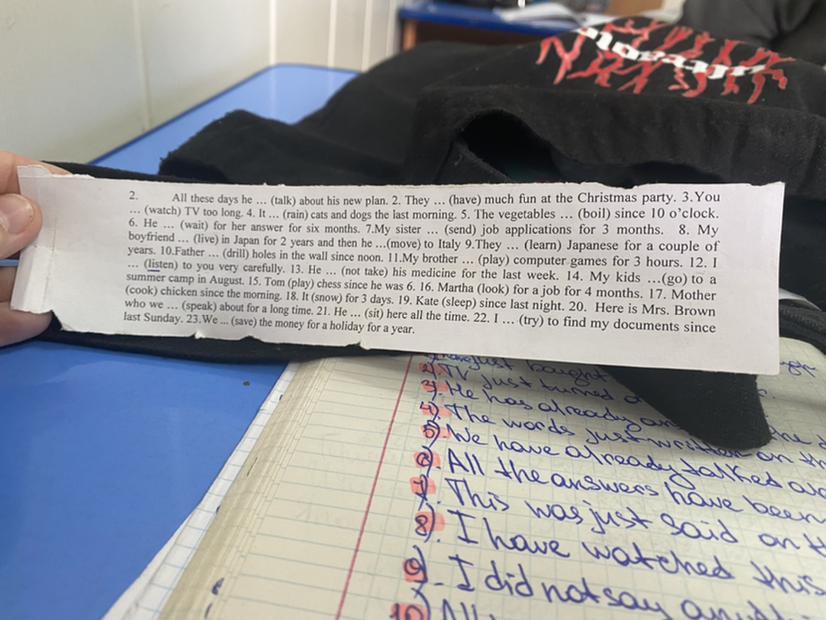 2. All these days he … (talk) about his new plan. 2. They … (have) much fun at the Christmas party. 3.You
… (watch) TV too long. 4. It … (rain) cats and dogs the last morning. 5. The vegetables … (boil) since 10 o'clock.
6. He … (wait) for her answer for six months. 7.My sister … (send) job applications for 3 months. 8. My
boyfriend … (live) in Japan for 2 years and then he …(move) to Italy 9.They … (learn) Japanese for a couple of
years. 10.Father … (drill) holes in the wall since noon. 11.My brother … (play) computer games for 3 hours. 12. I
… (listen) to you very carefully. 13. He … (not take) his medicine for the last week. 14. My kids …(go) to a
summer camp in August. 15. Tom (play) chess since he was 6. 16. Martha (look) for a job for 4 months. 17. Mother
(cook) chicken since the morning. 18. It (snow) for 3 days. 19. Kate (sleep) since last night. 20. Here is Mrs. Brown
who we … (speak) about for a long time. 21. He … (sit) here all the time. 22. I … (try) to find my documents since
last Sunday. 23.We … (save) the money for a holiday for a year.
just bought
2) TV just burned
3) He has already
4) The words just written on th
5) We have already talked
6) All the answers have been
7) This was just said on t
8) I have watched this
9) I did not say
10) All